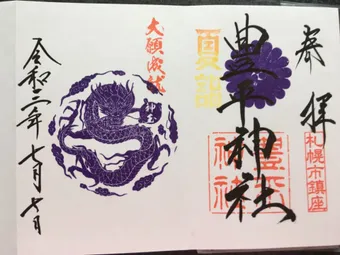 奉拝
札幌市鎮座
夏詣
豊平神社
豊平神社
大願成就
令和二年七月七日